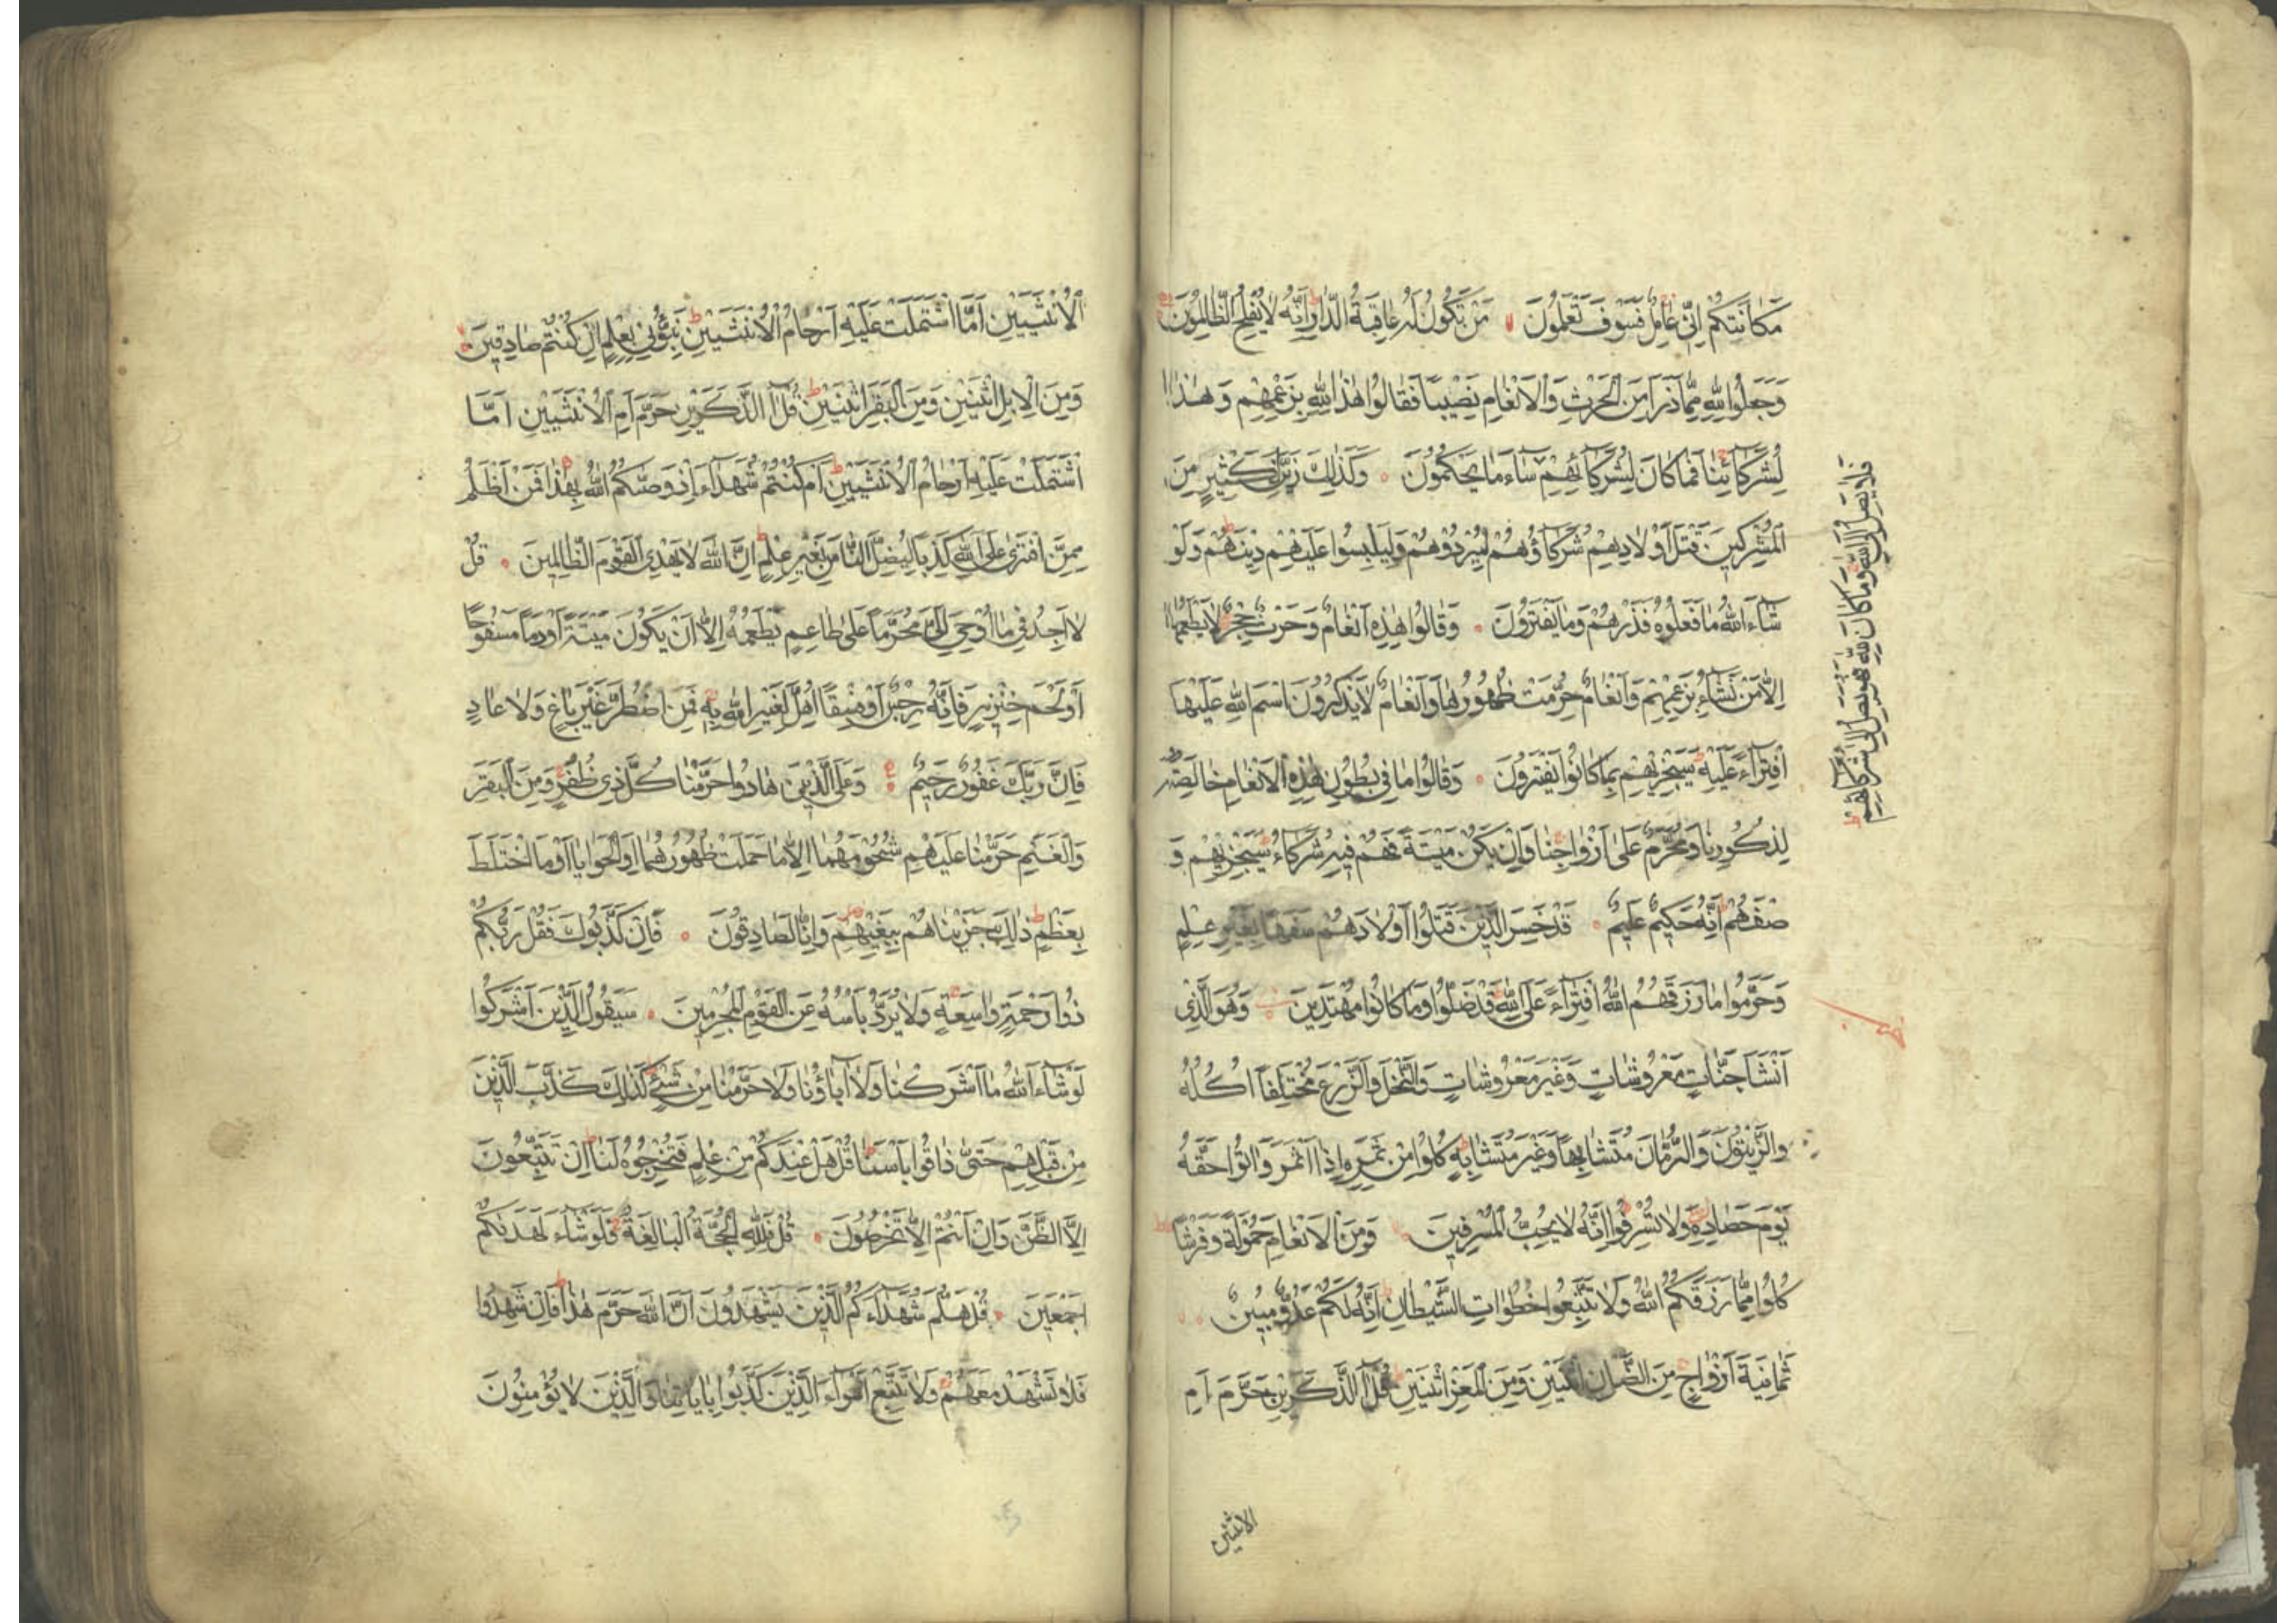 مَكَانَتِكُمْ اِنّ۪ي عَامِلٌ فَسَوْفَ تَعْلَمُونَ مَنْ تَكُونُ لَهُ عَاقِبَةُ الدَّارِ اِنَّهُ لَا يُفْلِحُ الظَّالِمُونَ
وَجَعَلُوا لِلّٰهِ مِمَّا ذَرَاَ مِنَ الْحَرْثِ وَالْاَنْعَامِ نَصِيبًا فَقَالُوا هٰذَا لِلّٰهِ بِزَعْمِهِمْ وَهٰذَا
لِشُرَكَائِنَا فَمَا كَانَ لِشُرَكَائِهِمْ سَاءَ مَا يَحْكُمُونَ وَكَذٰلِكَ زَيَّنَ لِكَثِيرٍ مِنَ
الْمُشْرِكِينَ قَتْلَ اَوْلَادِهِمْ شُرَكَاؤُهُمْ لِيُرْدُوهُمْ وَلِيَلْبِسُوا عَلَيْهِمْ دِينَهُمْ وَلَوْ
شَاءَ اللّٰهُ مَا فَعَلُوهُ فَذَرْهُمْ وَمَا يَفْتَرُونَ وَقَالُوا هٰذِهِ اَنْعَامٌ وَحَرْثٌ حِجْرٌ لَا يَطْعَمُهَا
اِلَّا مَنْ نَشَاءُ بِزَعْمِهِمْ وَاَنْعَامٌ حُرِّمَتْ ظُهُورُهَا وَاَنْعَامٌ لَا يَذْكُرُونَ اسْمَ اللّٰهِ عَلَيْهَا
افْتِرَاءً عَلَيْهِ سَيَجْزِيهِمْ بِمَا كَانُوا يَفْتَرُونَ وَقَالُوا مَا فِي بُطُونِ هٰذِهِ الْاَنْعَامِ خَالِصَةٌ
لِذُكُورِنَا وَمُحَرَّمٌ عَلٰى اَزْوَاجِنَا وَاِنْ يَكُنْ مَيْتَةً فَهُمْ فِيهِ شُرَكَاءُ سَيَجْزِيهِمْ وَ
صْفَهُمْ اِنَّهُ حَكِيمٌ عَلِيمٌ قَدْ خَسِرَ الَّذِينَ قَتَلُوا اَوْلَادَهُمْ سَفَهًا بِغَيْرِ عِلْمٍ
وَحَرَّمُوا مَا رَزَقَهُمُ اللّٰهُ افْتِرَاءً عَلَى اللّٰهِ قَدْ ضَلُّوا وَمَا كَانُوا مُهْتَدِينَ وَهُوَ الَّذِي
اَنْشَاَ جَنَّاتٍ مَعْرُوشَاتٍ وَغَيْرَ مَعْرُوشَاتٍ وَالنَّخْلَ وَالزَّرْعَ مُخْتَلِفًا اُكُلُهُ
وَالزَّيْتُونَ وَالرُّمَّانَ مُتَشَابِهًا وَغَيْرَ مُتَشَابِهٍ كُلُوا مِنْ ثَمَرِهِ اِذَا اَثْمَرَ وَاٰتُوا حَقَّهُ
يَوْمَ حَصَادِهِ وَلَا تُسْرِفُوا اِنَّهُ لَا يُحِبُّ الْمُسْرِفِينَ وَمِنَ الْاَنْعَامِ حَمُولَةً وَفَرْشًا
كُلُوا مِمَّا رَزَقَكُمُ اللّٰهُ وَلَا تَتَّبِعُوا خُطُوَاتِ الشَّيْطَانِ اِنَّهُ لَكُمْ عَدُوٌّ مُبِينٌ
ثَمَانِيَةَ اَزْوَاجٍ مِنَ الضَّاْنِ اثْنَيْنِ وَمِنَ الْمَعْزِ اثْنَيْنِ قُلْ اٰلذَّكَرَيْنِ حَرَّمَ اَمِ
الانثيين
فَلَا يَصِلُ اِلَى اللّٰهِ وَمَا كَانَ لِلّٰهِ فَهُوَ يَصِلُ اِلٰى شُرَكَائِهِمْ
الْاُنْثَيَيْنِ اَمَّا اشْتَمَلَتْ عَلَيْهِ اَرْحَامُ الْاُنْثَيَيْنِ نَبِّؤُنِي بِعِلْمٍ اِنْ كُنْتُمْ صَادِقِينَ
وَمِنَ الْاِبِلِ اثْنَيْنِ وَمِنَ الْبَقَرِ اثْنَيْنِ قُلْ اٰلذَّكَرَيْنِ حَرَّمَ اَمِ الْاُنْثَيَيْنِ اَمَّا
اشْتَمَلَتْ عَلَيْهِ اَرْحَامُ الْاُنْثَيَيْنِ اَمْ كُنْتُمْ شُهَدَاءَ اِذْ وَصّٰىكُمُ اللّٰهُ بِهٰذَا فَمَنْ اَظْلَمُ
مِمَّنِ افْتَرٰى عَلَى اللّٰهِ كَذِبًا لِيُضِلَّ النَّاسَ بِغَيْرِ عِلْمٍ اِنَّ اللّٰهَ لَا يَهْدِي الْقَوْمَ الظَّالِمِينَ قُلْ
لَا اَجِدُ فِي مَا اُوحِيَ اِلَيَّ مُحَرَّمًا عَلٰى طَاعِمٍ يَطْعَمُهُ اِلَّا اَنْ يَكُونَ مَيْتَةً اَوْ دَمًا مَسْفُوحًا
اَوْ لَحْمَ خِنْزِيرٍ فَاِنَّهُ رِجْسٌ اَوْ فِسْقًا اُهِلَّ لِغَيْرِ اللّٰهِ بِهِ فَمَنِ اضْطُرَّ غَيْرَ بَاغٍ وَلَا عَادٍ
فَاِنَّ رَبَّكَ غَفُورٌ رَحِيمٌ وَعَلَى الَّذِينَ هَادُوا حَرَّمْنَا كُلَّ ذِي ظُفُرٍ وَمِنَ الْبَقَرِ
وَالْغَنَمِ حَرَّمْنَا عَلَيْهِمْ شُحُومَهُمَا اِلَّا مَا حَمَلَتْ ظُهُورُهُمَا اَوِ الْحَوَايَا اَوْ مَا اخْتَلَطَ
بِعَظْمٍ ذٰلِكَ جَزَيْنَاهُمْ بِبَغْيِهِمْ وَاِنَّا لَصَادِقُونَ فَاِنْ كَذَّبُوكَ فَقُلْ رَبُّكُمْ
ذُوا رَحْمَةٍ وَاسِعَةٍ وَلَا يُرَدُّ بَاْسُهُ عَنِ الْقَوْمِ الْمُجْرِمِينَ سَيَقُولُ الَّذِينَ اَشْرَكُوا
لَوْ شَاءَ اللّٰهُ مَا اَشْرَكْنَا وَلَا اٰبَاؤُنَا وَلَا حَرَّمْنَا مِنْ شَيْءٍ كَذٰلِكَ كَذَّبَ الَّذِينَ
مِنْ قَبْلِهِمْ حَتّٰى ذَاقُوا بَاْسَنَا قُلْ هَلْ عِنْدَكُمْ مِنْ عِلْمٍ فَتُخْرِجُوهُ لَنَا اِنْ تَتَّبِعُونَ
اِلَّا الظَّنَّ وَاِنْ اَنْتُمْ اِلَّا تَخْرُصُونَ قُلْ فَلِلّٰهِ الْحُجَّةُ الْبَالِغَةُ فَلَوْ شَاءَ لَهَدٰيكُمْ
اَجْمَعِينَ قُلْ هَلُمَّ شُهَدَاءَكُمُ الَّذِينَ يَشْهَدُونَ اَنَّ اللّٰهَ حَرَّمَ هٰذَا فَاِنْ شَهِدُوا
فَلَا تَشْهَدْ مَعَهُمْ وَلَا تَتَّبِعْ اَهْوَاءَ الَّذِينَ كَذَّبُوا بِاٰيَاتِنَا وَالَّذِينَ لَا يُؤْمِنُونَ